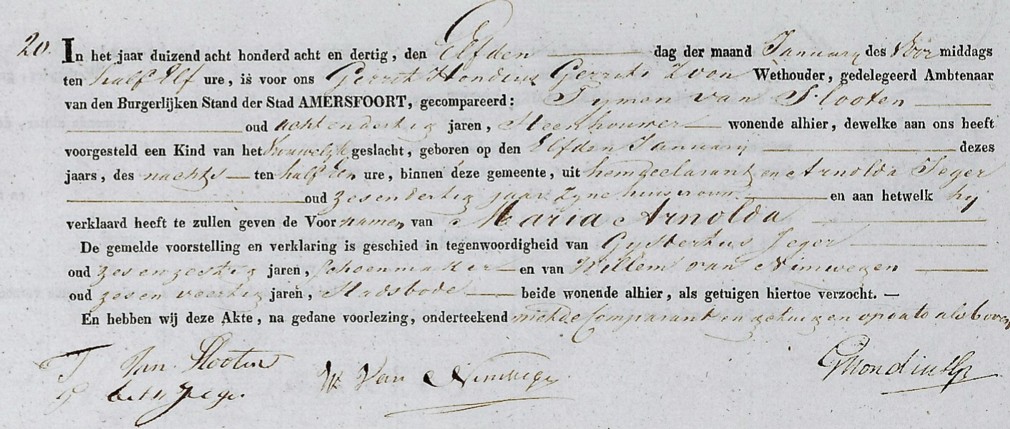 20. In het jaar duizend acht honderd acht en dertig, den Elfden dag der maand January des Voor middags
ten half Elf ure, is voor ons Gerrit Hondius Gerrits Zoon Wethouder, gedelegeerd Ambtenaar
van den Burgerlijken Stand der Stad AMERSFOORT, gecompareerd: Tymen van Slooten
oud acht en dertig jaren, Steenhouwer wonende alhier, dewelke aan ons heeft
voorgesteld een Kind van het Vrouwelyk geslacht, geboren op den Elfden January dezes
jaars, des nachts ten half een ure, binnen deze gemeente, uit hem declarant en Arnolda Jeger
oud zes en dertig jaar zyne huisvrouw en aan hetwelk hy
verklaard heeft te zullen geven de Voornamen van Maria Arnolda
De gemelde voorstelling en verklaring is geschied in tegenwoordigheid van Gysbertus Jeger
oud zes en zestig jaren, Schoenmaker en van Willem van Nimwegen
oud zes en veertig jaren, Stadsbode beide wonende alhier, als getuigen hiertoe verzocht. —
En hebben wij deze Akte, na gedane voorlezing, onderteekend met de Comparant en getuigen op dato als boven
T Van Slooten
G Jeger W Van Nimwegen GHondiusGz